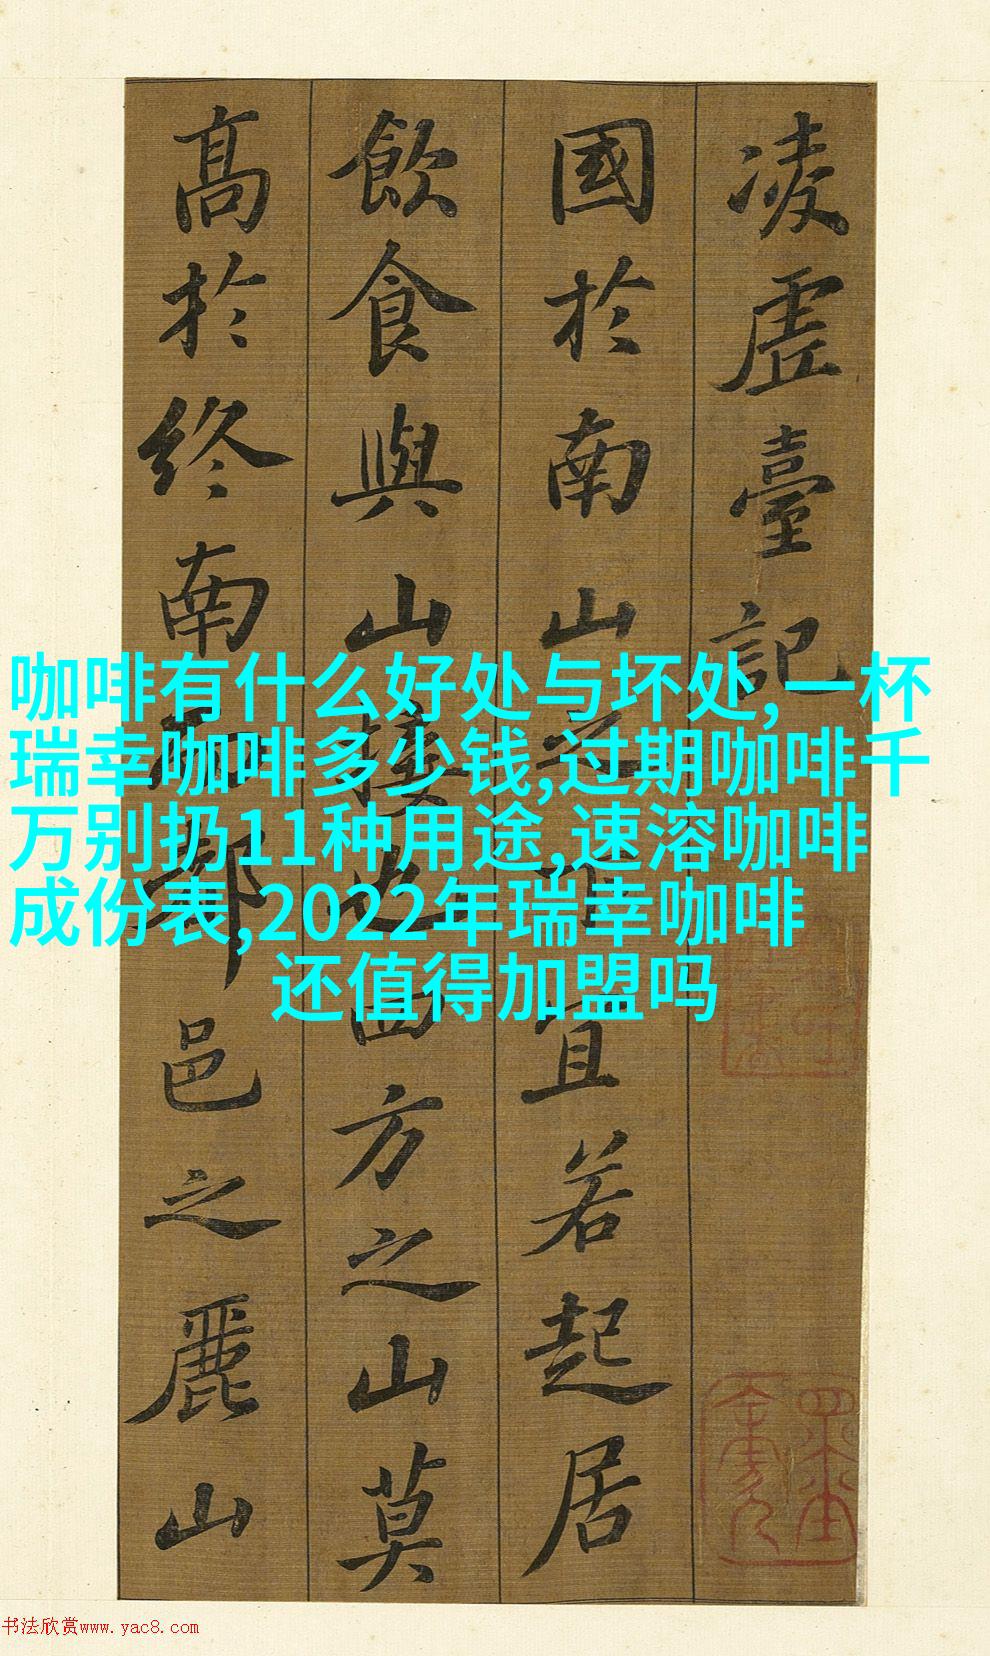 凌虛臺記
國於南山之下宜若起居
飲食與山接也四方之山莫
高於終南而都邑之麗山
咖啡有什么好处与坏处,一杯
瑞幸咖啡多少钱,过期咖啡千
万别扔11种用途,速溶咖啡
成份表,2022年瑞幸咖啡
还值得加盟吗
书法欣赏www.yac8.com